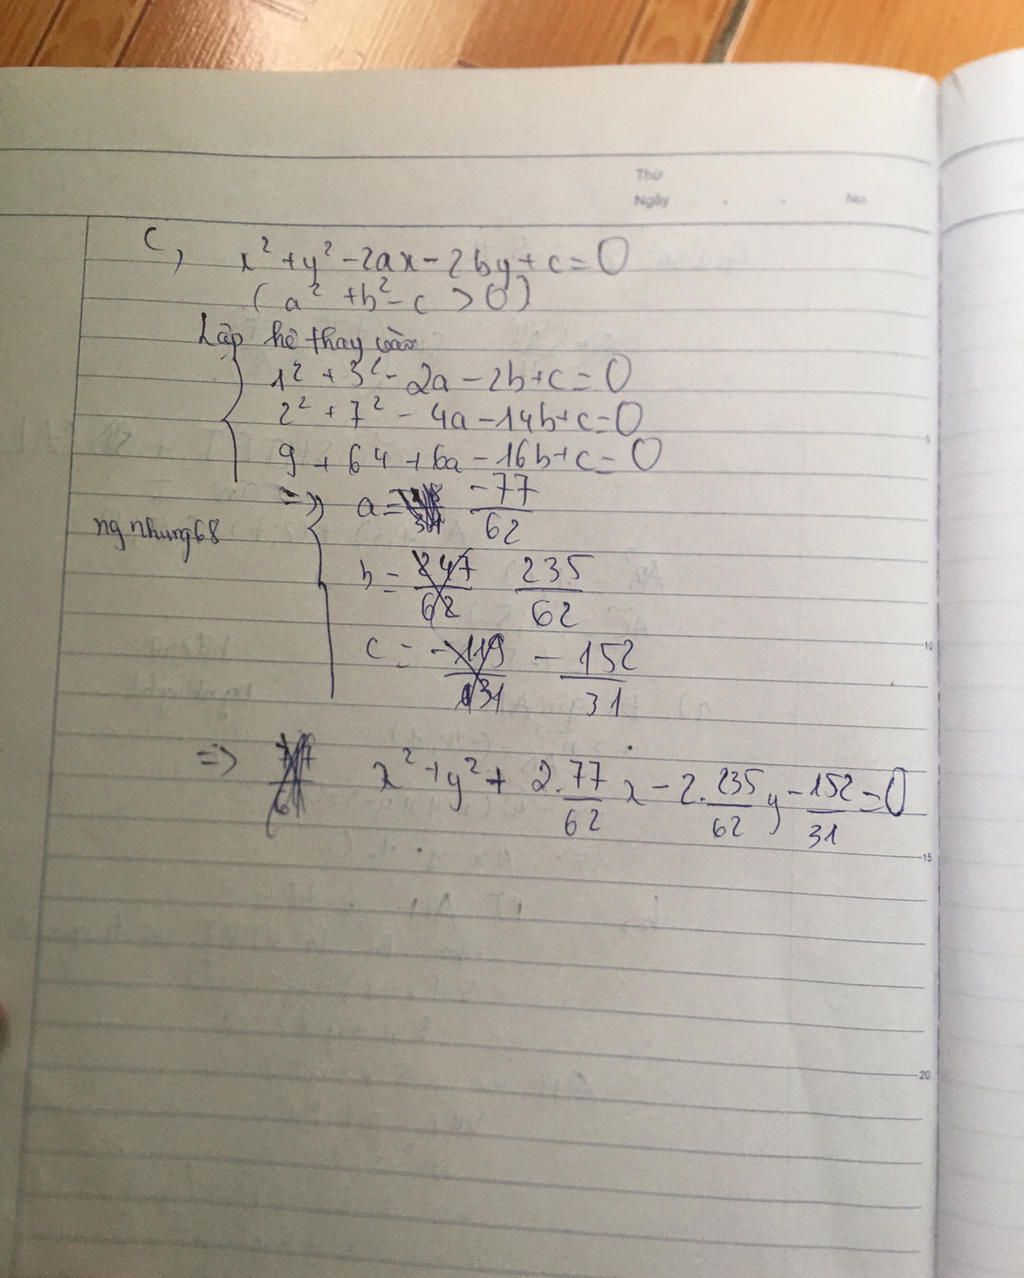 Thứ
Ngày . . No.
c, x² + y² - 2ax - 2by + c = 0
(a² + b² - c > 0)
Lập hệ thay vào
1² + 3² - 2a - 2b + c = 0
2² + 7² - 4a - 14b + c = 0
9 + 64 + 6a - 16b + c = 0
=> a = -77/62
ngnhung68
b = 247/62 235/62
c = -119/31 -152/31
=> x² + y² + 2.77/62 x - 2.235/62 y - 152/31 = 0
5
10
15
20